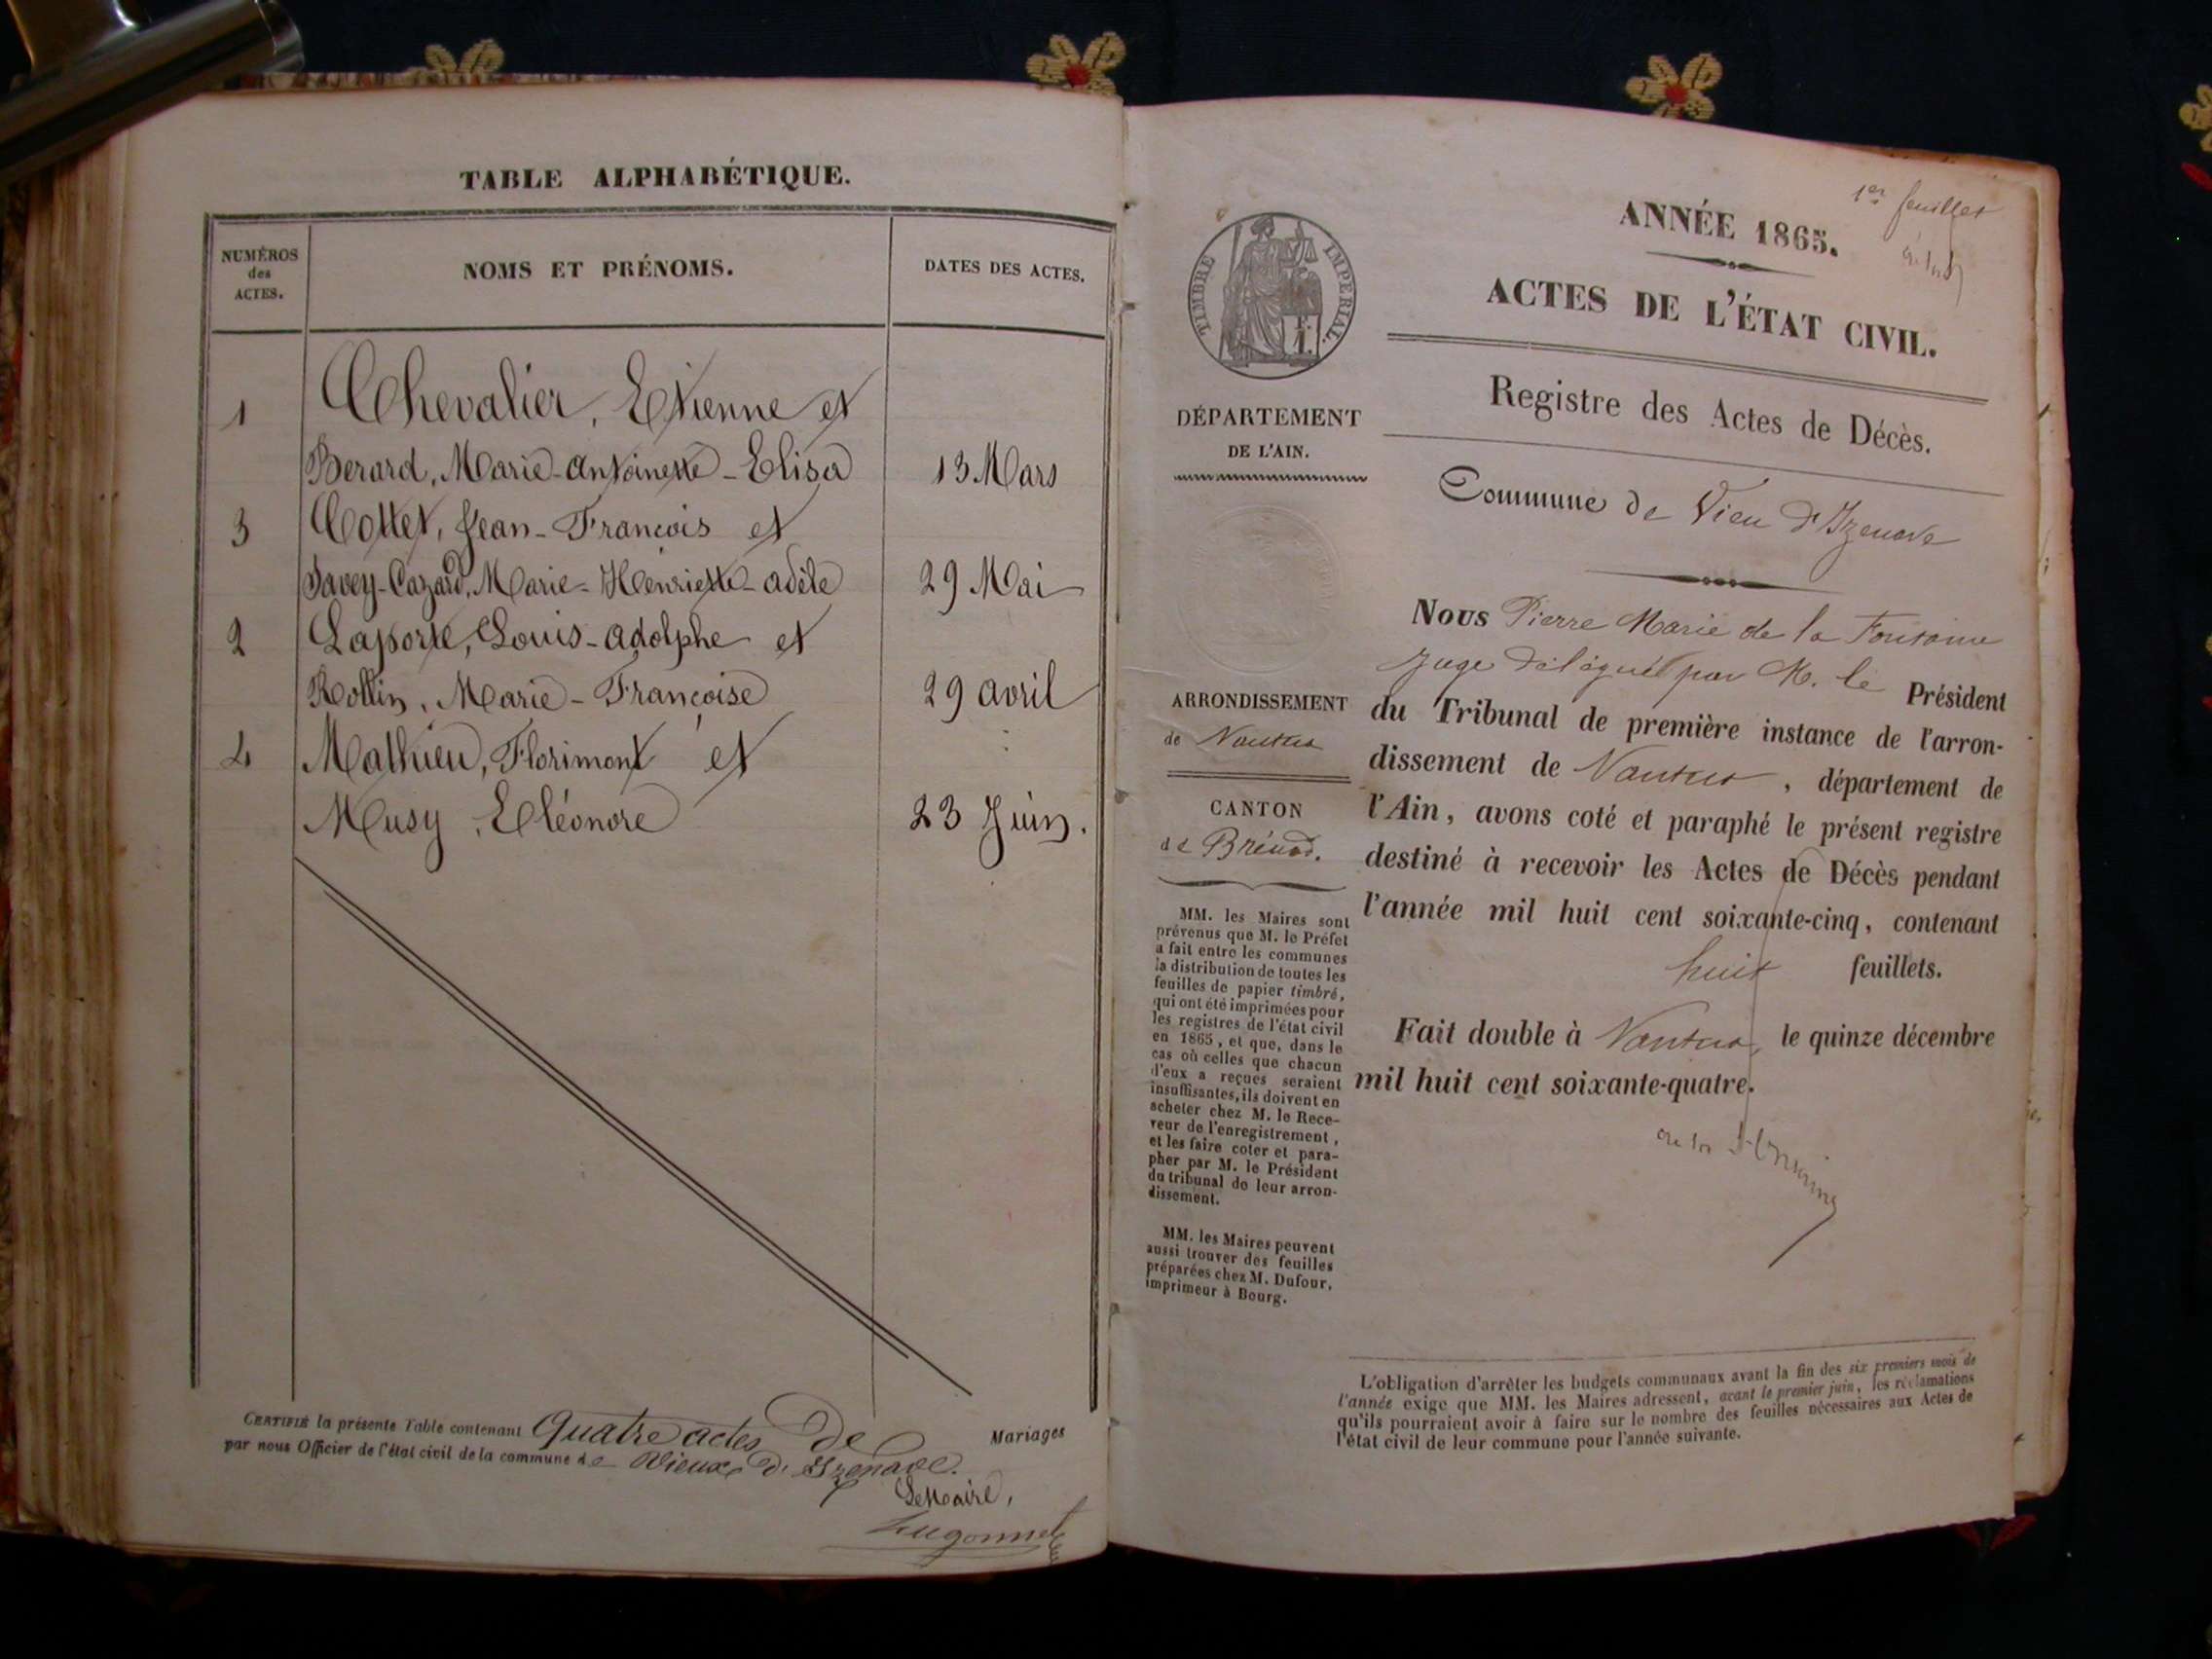 TABLE ALPHABÉTIQUE.
NUMÉROS
des
ACTES.
NOMS ET PRÉNOMS.
DATES DES ACTES.
1 Chevalier, Etienne et
Berard, Marie-Antoinette-Elisa 13 Mars
3 Cottet, Jean-François et
Savey-Cazard, Marie-Henriette-adèle 29 Mai
2 Laporte, Louis-adolphe et
Rollin, Marie-Françoise 29 avril
4 Mathieu, Florimont et
Musy, Eléonore 23 Juin.
CERTIFIÉ la présente Table contenant Quatre actes De Mariages
par nous Officier de l'état civil de la commune de Vieux d'Izenave.
Le Maire,
Hugonnet
1er feuillet
ANNÉE 1865.
ACTES DE L'ÉTAT CIVIL.
Registre des Actes de Décès.
Commune de Vieu d'Izenave
TIMBRE IMPERIAL
1F.
DÉPARTEMENT
DE L'AIN.
ARRONDISSEMENT
de Nantua
CANTON
de Brénod.
MM. les Maires sont
prévenus que M. le Préfet
a fait entre les communes
la distribution de toutes les
feuilles de papier timbré,
qui ont été imprimées pour
les registres de l'état civil
en 1865, et que, dans le
cas où celles que chacun
d'eux a reçues seraient
insuffisantes, ils doivent en
acheter chez M. le Rece-
veur de l'enregistrement,
et les faire coter et para-
pher par M. le Président
du tribunal de leur arron-
dissement.
MM. les Maires peuvent
aussi trouver des feuilles
préparées chez M. Dufour,
imprimeur à Bourg.
Nous Pierre Marie de la
Juge délégué par M. le Président
du Tribunal de première instance de l'arron-
dissement de Nantua, département de
l'Ain, avons coté et paraphé le présent registre
destiné à recevoir les Actes de Décès pendant
l'année mil huit cent soixante-cinq, contenant
huit feuillets.
Fait double à Nantua, le quinze décembre
mil huit cent soixante-quatre.
L'obligation d'arrêter les budgets communaux avant la fin des six premiers mois de
l'année exige que MM. les Maires adressent, avant le premier juin, les réclamations
qu'ils pourraient avoir à faire sur le nombre des feuilles nécessaires aux Actes de
l'état civil de leur commune pour l'année suivante.